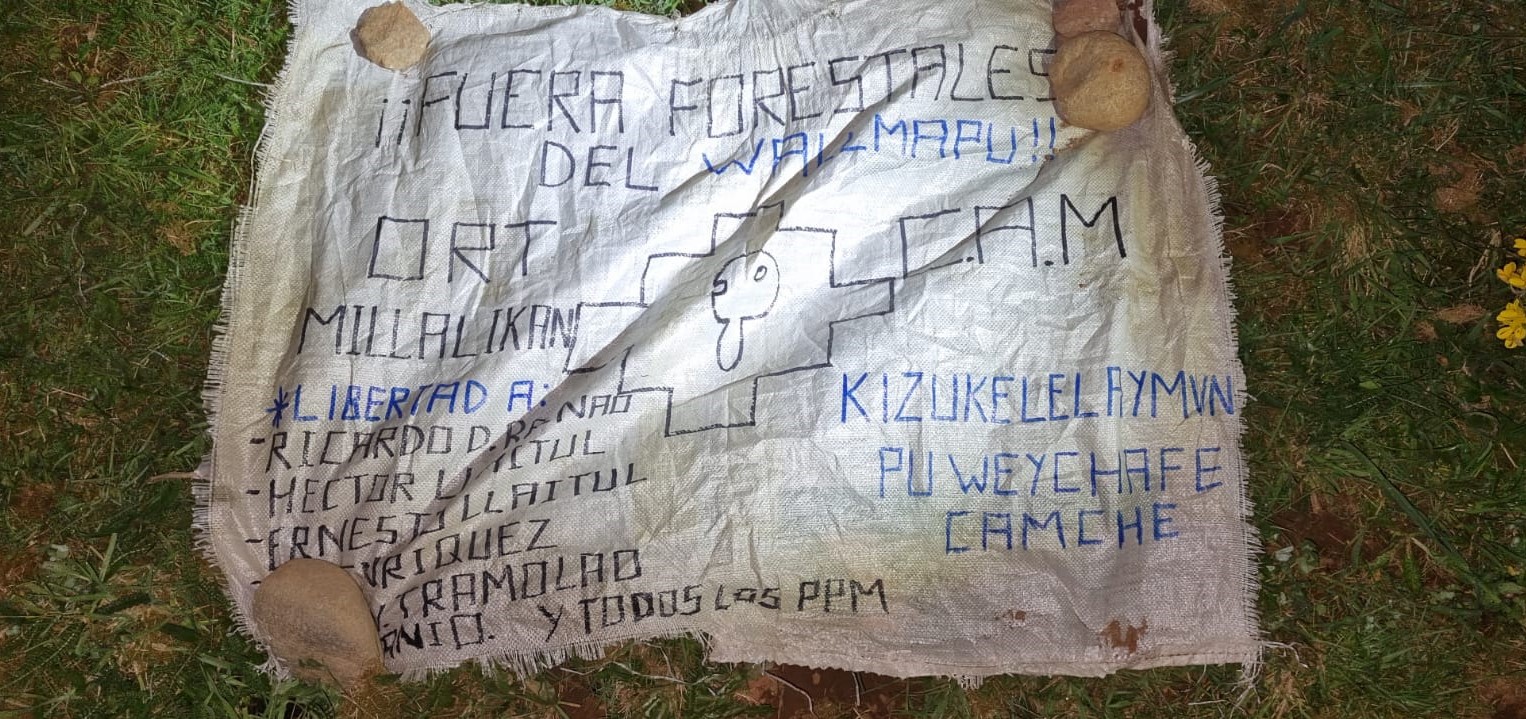 ¡¡FUERA FORESTALES
DEL WALLMAPU!!
ORT
C.A.M
MILLALIKAN
*LIBERTAD A:
-RICARDO D. NAO
-HECTOR LLAITUL
-ERNESTO LLAITUL
RIQUEZ
TRAMOLAO
ANIO. Y TODOS LOS PPM
KIZUKELELAYMVN
PU WEYCHAFE
CAMCHE